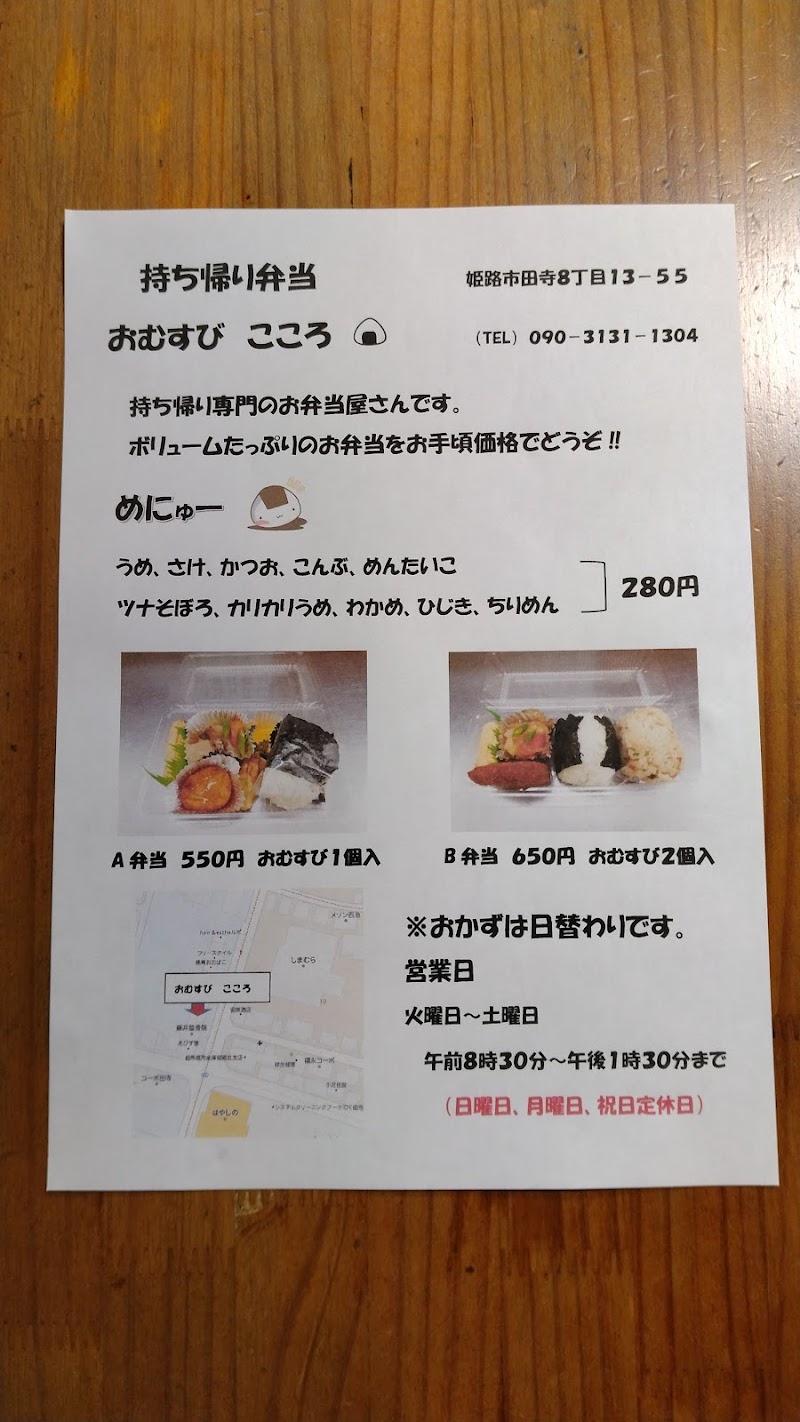 持ち帰り弁当
姫路市田寺8丁目13－55
おむすび こころ
（TEL）090－3131－1304
持ち帰り専門のお弁当屋さんです。
ボリュームたっぷりのお弁当をお手頃価格でどうぞ!!
めにゅー
うめ、さけ、かつお、こんぶ、めんたいこ
ツナそぼろ、カリカリうめ、わかめ、ひじき、ちりめん
280円
A弁当 550円 おむすび1個入
B弁当 650円 おむすび2個入
メゾン西浦
フリースタイル
しまむら
おむすび こころ
藤井整骨院
えびす亭
福永コーポ
コーポ田寺
はやしの
※おかずは日替わりです。
営業日
火曜日～土曜日
午前8時30分～午後1時30分まで
（日曜日、月曜日、祝日定休日）